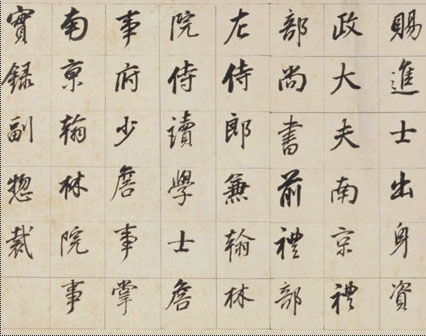 賜進士出身資
政大夫南京禮
部尚書前禮部
左侍郎兼翰林
院侍讀學士詹
事府少詹事掌
南京翰林院事
實録副總裁